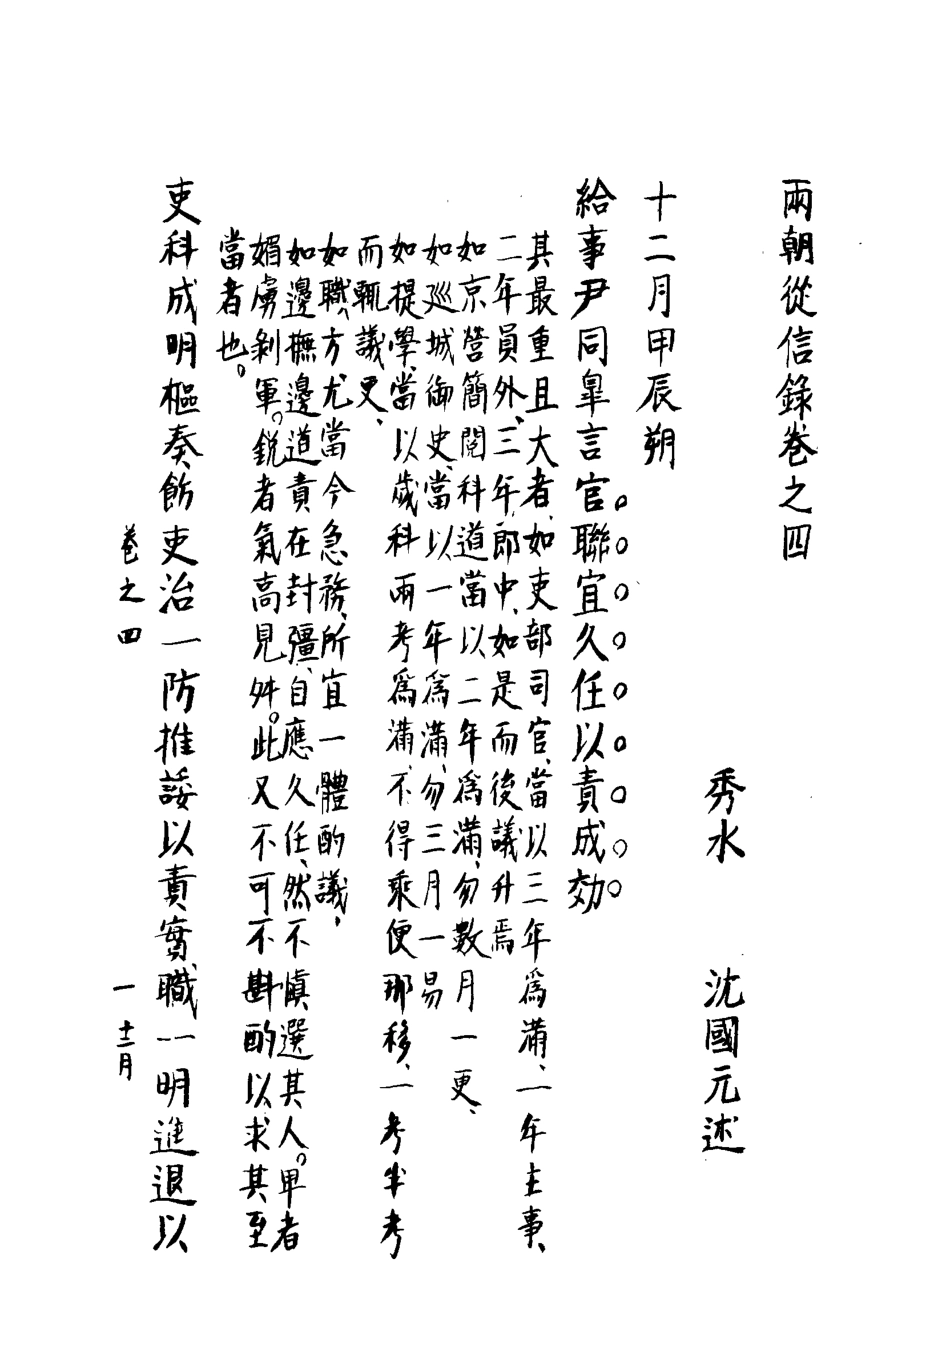 兩朝從信錄卷之四
秀水 沈國元述
十二月甲辰朔
給事尹同皐言官。聯。宜。久。任。以。責。成。効。
其最重且大者、如吏部司官、當以三年爲滿、一年主事、
二年員外、三年郎中、如是而後議升焉
如京營簡閱科道當以二年爲滿、勿數月一更、
如巡城御史、當以一年爲滿、勿三月一易
如提學、當以歲科兩考爲滿、不得乘便那移、一考半考
而輒議更、
如職方尤當今急務、所宜一體酌議、
如邊撫邊道責在封疆、自應久任、然不慎選其人。卑者
媚虜剝軍。銳者氣高見舛。此又不可不斟酌以求其至
當者也。
吏科成明樞奏飭吏治一防推諉以責實職一明進退以
卷之四 一 十二月